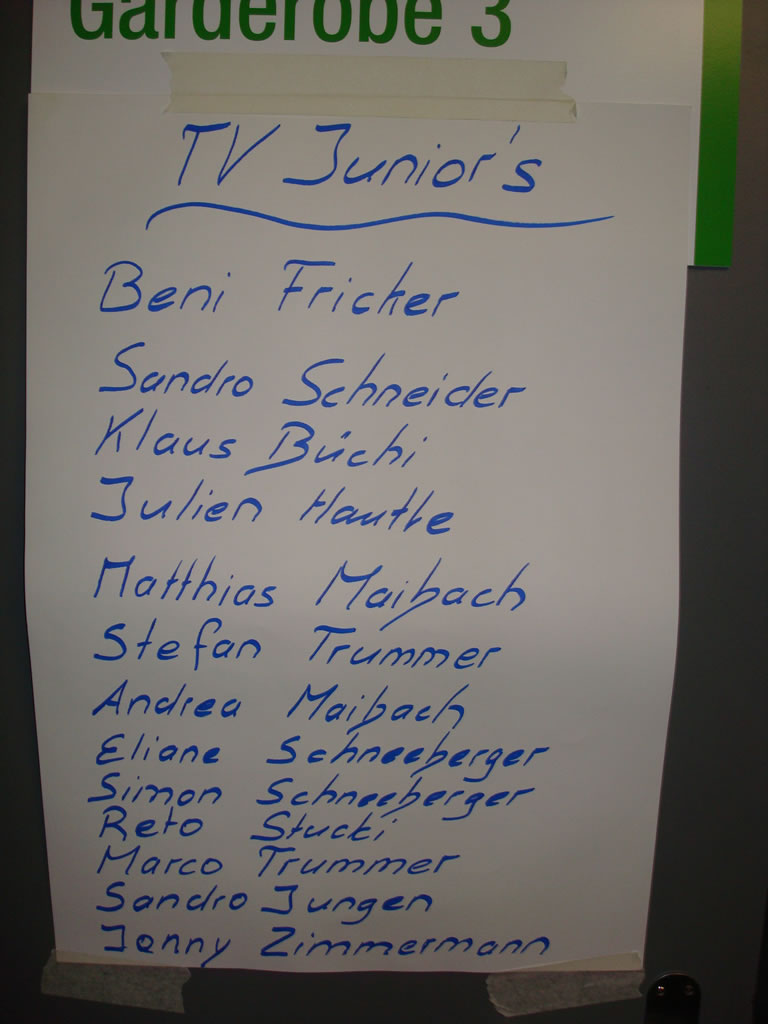 Garderobe 3
TV Junior's
Beni Fricker
Sandro Schneider
Klaus Büchi
Julien Hautle
Matthias Maibach
Stefan Trummer
Andrea Maibach
Eliane Schneeberger
Simon Schneeberger
Reto Stucki
Marco Trummer
Sandro Jungen
Jonny Zimmermann